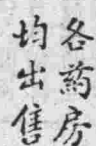 各葯房
均出售